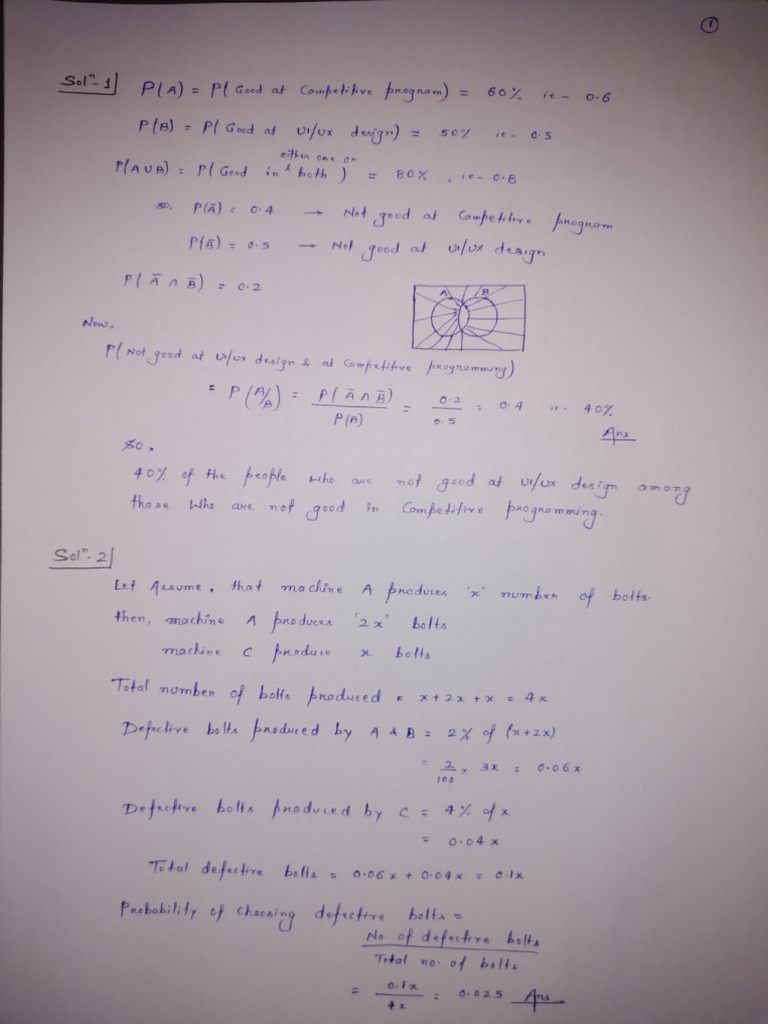 1
Solⁿ-1
P(A) = P( Good at Competitive program) = 60% ie - 0.6
P(B) = P( Good at UI/UX design) = 50% ie - 0.5
either one or
P(A∪B) = P( Good in & both ) = 80% , ie - 0.8
so, P(Ā) = 0.4 → Not good at Competitive program
P(B̄) = 0.5 → Not good at UI/UX design
P( Ā ∩ B̄) = 0.2
A B
Now,
P( Not good at UI/UX design & at Competitive programming)
= P(A/B) = P( Ā ∩ B̄) / P(B) = 0.2 / 0.5 = 0.4 ie. 40%
Ans
So,
40% of the people who are not good at UI/UX design among
those who are not good in Competitive programming.
Solⁿ-2
Let Assume, that machine A produces 'x' number of bolts.
then, machine A produces '2x' bolts
machine C produce x bolts
Total number of bolts produced = x+2x+x = 4x
Defective bolts produced by A & B = 2% of (x+2x)
= 2/100 × 3x = 0.06x
Defective bolts produced by C = 4% of x
= 0.04x
Total defective bolts = 0.06x + 0.04x = 0.1x
Probability of choosing defective bolts =
No of defective bolts
Total no. of bolts
= 0.1x / 4x = 0.025 Ans